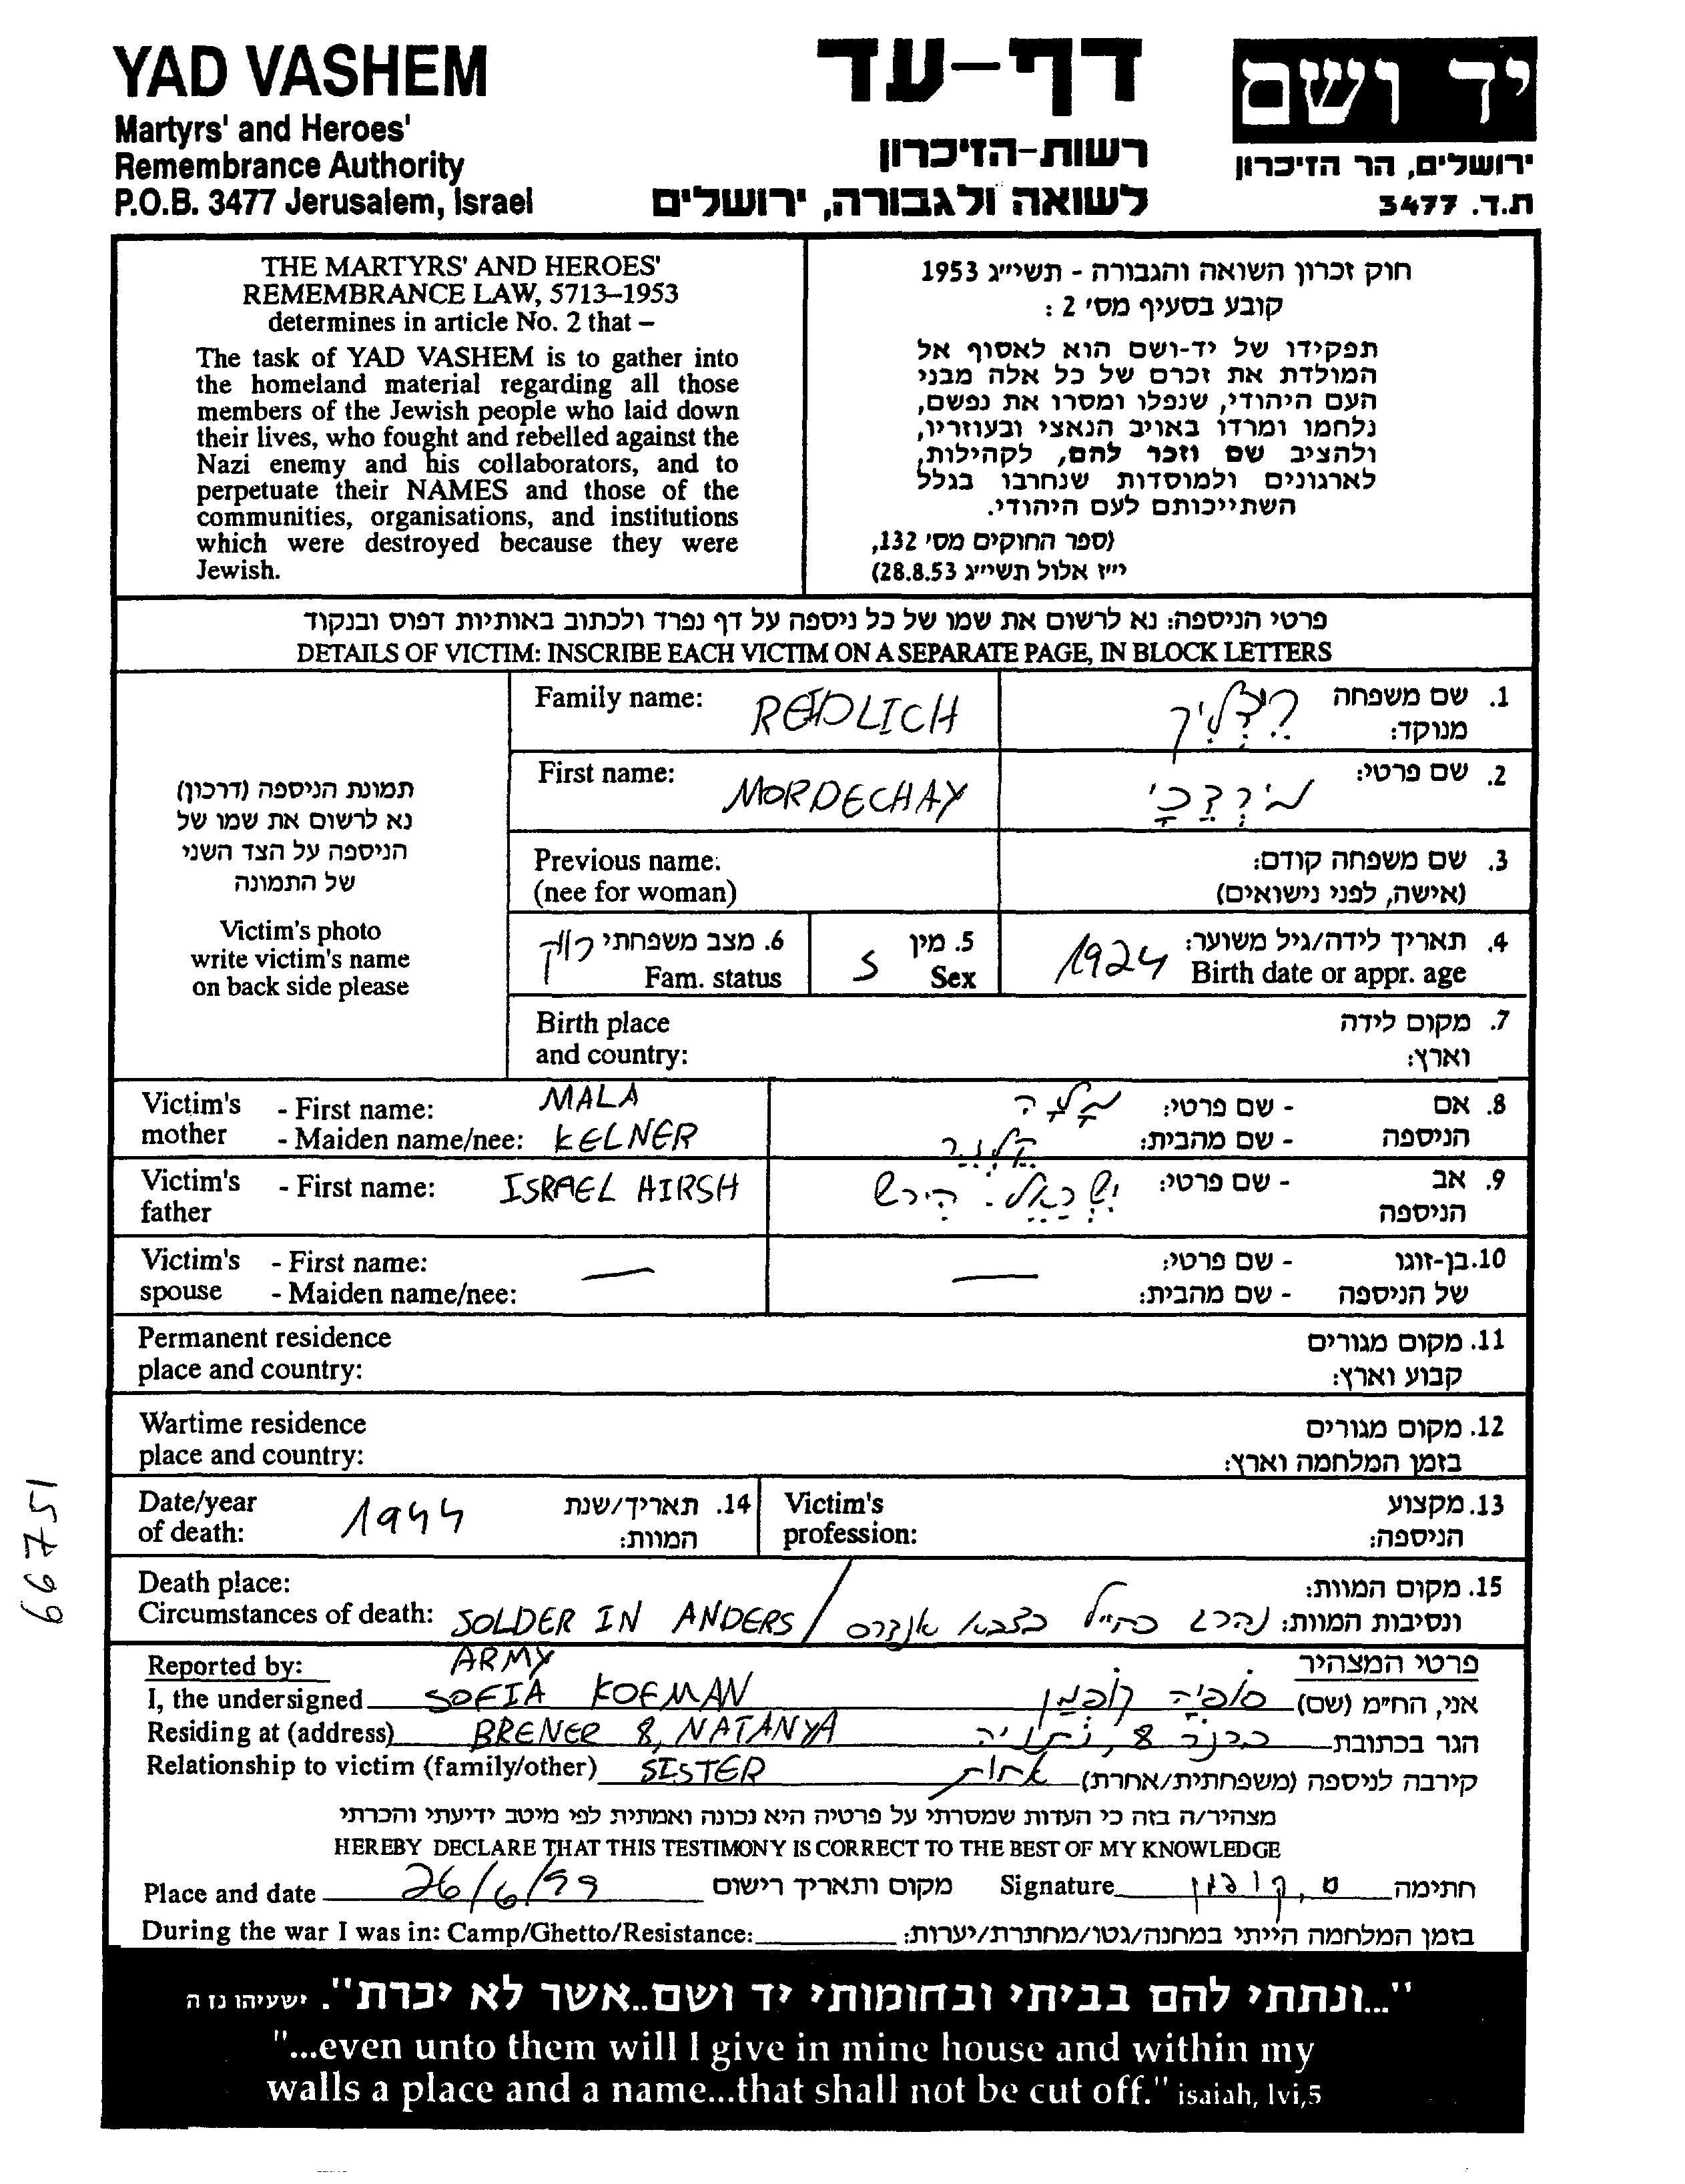 YAD VASHEM
Martyrs' and Heroes'
Remembrance Authority
P.O.B. 3477 Jerusalem, Israel
דף-עד
רשות-הזיכרון
לשואה ולגבורה, ירושלים
יד ושם
ירושלים, הר הזיכרון
ת.ד. 3477
THE MARTYRS' AND HEROES'
REMEMBRANCE LAW, 5713–1953
determines in article No. 2 that –
The task of YAD VASHEM is to gather into
the homeland material regarding all those
members of the Jewish people who laid down
their lives, who fought and rebelled against the
Nazi enemy and his collaborators, and to
perpetuate their NAMES and those of the
communities, organisations, and institutions
which were destroyed because they were
Jewish.
חוק זכרון השואה והגבורה - תשי״ג 1953
קובע בסעיף מס' 2 :
תפקידו של יד-ושם הוא לאסוף אל
המולדת את זכרם של כל אלה מבני
העם היהודי, שנפלו ומסרו את נפשם,
נלחמו ומרדו באויב הנאצי ובעוזריו,
ולהציב שם וזכר להם, לקהילות,
לארגונים ולמוסדות שנחרבו בגלל
השתייכותם לעם היהודי.
(ספר החוקים מס' 132,
י״ז אלול תשי״ג 28.8.53)
פרטי הניספה: נא לרשום את שמו של כל ניספה על דף נפרד ולכתוב באותיות דפוס ובנקוד
DETAILS OF VICTIM: INSCRIBE EACH VICTIM ON A SEPARATE PAGE, IN BLOCK LETTERS
תמונת הניספה (דרכון)
נא לרשום את שמו של
הניספה על הצד השני
של התמונה
Victim's photo
write victim's name
on back side please
Family name: REIDLICH רידליך 1. שם משפחה
מנוקד:
First name: MORDECHAY מורדכי 2. שם פרטי:
Previous name: 3. שם משפחה קודם:
(nee for woman) (אישה, לפני נישואים)
6. מצב משפחתי רווק 5. מין 4. תאריך לידה/גיל משוער:
Fam. status Sex 1924 Birth date or appr. age
Birth place 7. מקום לידה
and country: וארץ:
Victim's - First name: MALA מלה - שם פרטי: 8. אם
mother - Maiden name/nee: KELNER קלנר - שם מהבית: הניספה
Victim's - First name: ISRAEL HIRSH ישראל הירש - שם פרטי: 9. אב
father הניספה
Victim's - First name: — — - שם פרטי: 10. בן-זוגו
spouse - Maiden name/nee: - שם מהבית: של הניספה
Permanent residence 11. מקום מגורים
place and country: קבוע וארץ:
Wartime residence 12. מקום מגורים
place and country: בזמן המלחמה וארץ:
Date/year 1944 14. תאריך/שנת Victim's 13. מקצוע
of death: המוות: profession: הניספה:
Death place: 15. מקום המוות:
Circumstances of death: SOLDER IN ANDERS / נהרג כחייל בצבא אנדרס ונסיבות המוות:
ARMY
Reported by: פרטי המצהיר
I, the undersigned SOFIA KOFMAN סופיה קופמן אני, הח״מ (שם)
Residing at (address) BRENER 8, NATANYA ברנר 8, נתניה הגר בכתובת
Relationship to victim (family/other) SISTER אחות קירבה לניספה (משפחתית/אחרת)
מצהיר/ה בזה כי העדות שמסרתי על פרטיה היא נכונה ואמתית לפי מיטב ידיעתי והכרתי
HEREBY DECLARE THAT THIS TESTIMONY IS CORRECT TO THE BEST OF MY KNOWLEDGE
Place and date 26/6/99 מקום ותאריך רישום Signature ס, קופמן חתימה
During the war I was in: Camp/Ghetto/Resistance: בזמן המלחמה הייתי במחנה/גטו/מחתרת/יערות:
"...ונתתי להם בביתי ובחומותי יד ושם..אשר לא יכרת". ישעיהו נו ה
"...even unto them will I give in mine house and within my
walls a place and a name...that shall not be cut off." isaiah, lvi,5